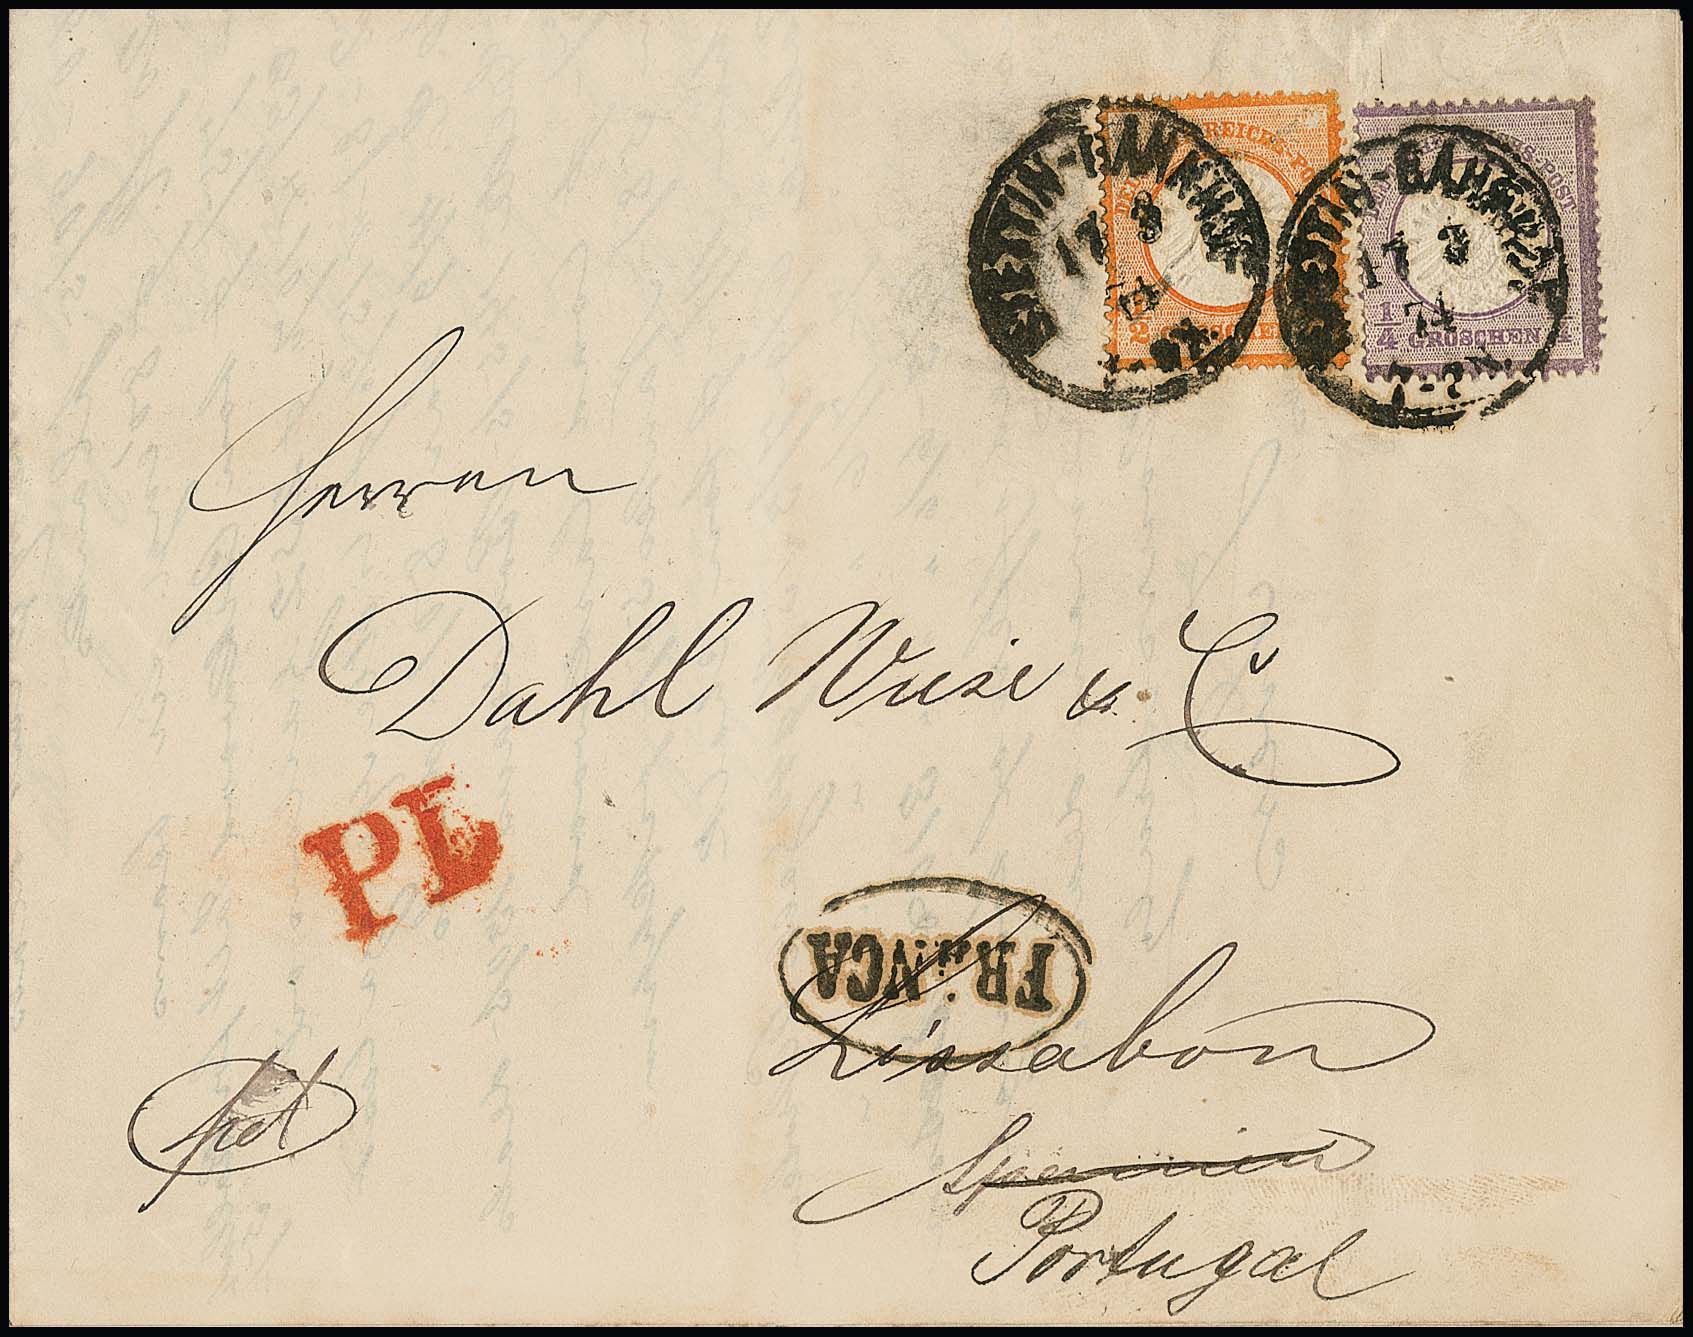 STETTIN-BAHNHOF
17 3
74
DEUTSCHE REICHS-POST
1/2 GROSCHEN
STETTIN-BAHNHOF
17 3
74
7-8 N.
REICHS-POST
1/4 GROSCHEN 1/4
Herren
Dahl Wiese & C
PD
FRANCA
Lissabon
Spanien
Portugal